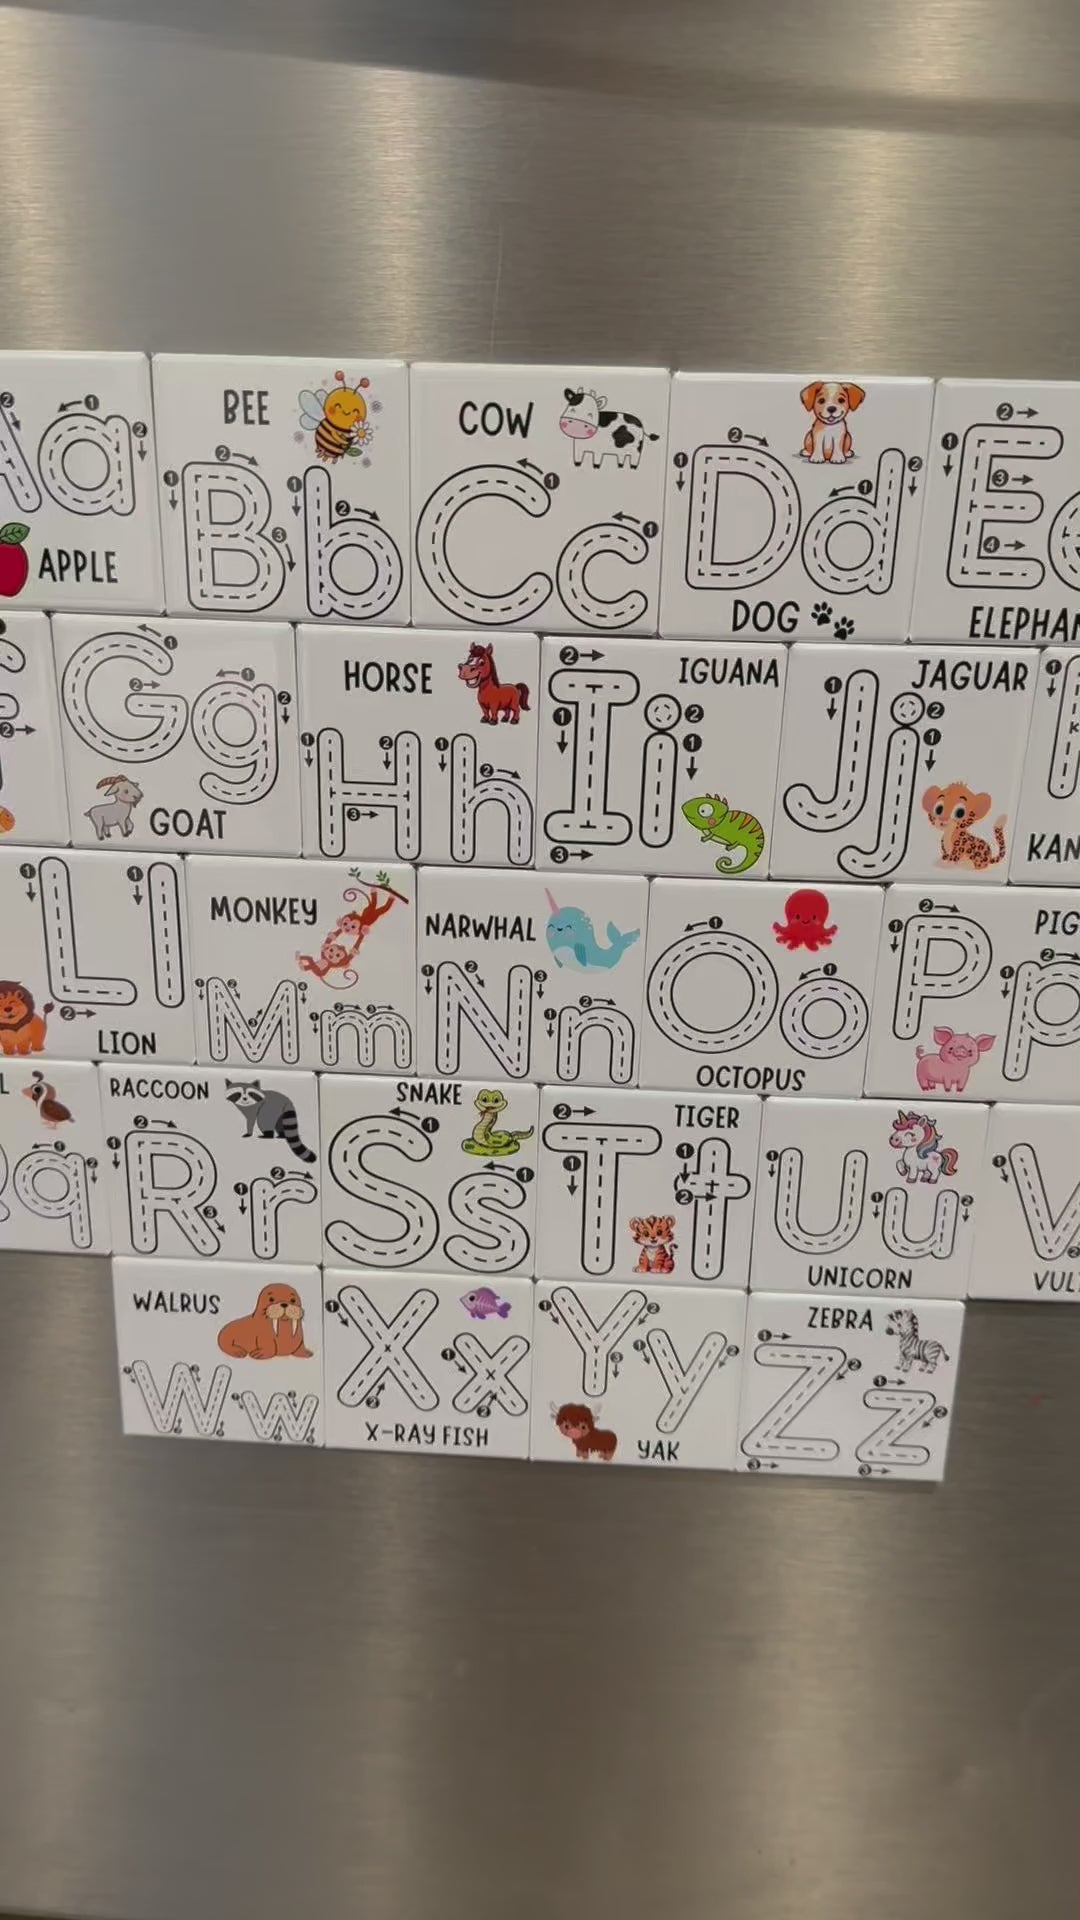 Aa
APPLE
BEE
Bb
COW
Cc
Dd
DOG
E
Gg
GOAT
HORSE
Hh
IGUANA
Ii
JAGUAR
Jj
Ll
LION
MONKEY
Mm
NARWHAL
Nn
Oo
OCTOPUS
PIG
Pp
q
RACCOON
Rr
SNAKE
Ss
TIGER
Tt
Uu
UNICORN
V
WALRUS
Ww
Xx
X-RAY FISH
Yy
YAK
ZEBRA
Zz